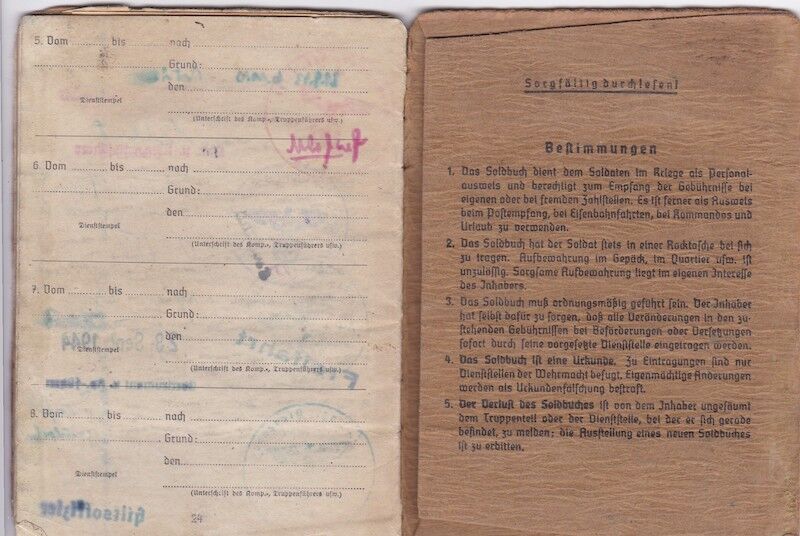 5. Vom bis nach
Grund:
den
Dienststempel
(Unterschrift des Komp., Truppenführers usw.)
6. Vom bis nach
Grund:
den
Dienststempel
(Unterschrift des Komp., Truppenführers usw.)
7. Vom bis nach
Grund:
den
Dienststempel
(Unterschrift des Komp., Truppenführers usw.)
8. Vom bis nach
Grund:
den
Dienststempel
(Unterschrift des Komp., Truppenführers usw.)
24
Sorgfältig durchlesen!
Bestimmungen
1. Das Soldbuch dient dem Soldaten im Kriege als Personal-
ausweis und berechtigt zum Empfang der Gebührnisse bei
eigenen oder bei fremden Zahlstellen. Es ist ferner als Ausweis
beim Postempfang, bei Eisenbahnfahrten, bei Kommandos und
Urlaub zu verwenden.
2. Das Soldbuch hat der Soldat stets in einer Rocktasche bei sich
zu tragen. Aufbewahrung im Gepäck, im Quartier usw. ist
unzulässig. Sorgsame Aufbewahrung liegt im eigenen Interesse
des Inhabers.
3. Das Soldbuch muß ordnungsmäßig geführt sein. Der Inhaber
hat selbst dafür zu sorgen, daß alle Veränderungen in den zu-
stehenden Gebührnissen bei Beförderungen oder Versetzungen
sofort durch seine vorgesetzte Dienststelle eingetragen werden.
4. Das Soldbuch ist eine Urkunde. Zu Eintragungen sind nur
Dienststellen der Wehrmacht befugt. Eigenmächtige Änderungen
werden als Urkundenfälschung bestraft.
5. Der Verlust des Soldbuches ist von dem Inhaber ungesäumt
dem Truppenteil oder der Dienststelle, bei der er sich gerade
befindet, zu melden; die Ausstellung eines neuen Soldbuches
ist zu erbitten.